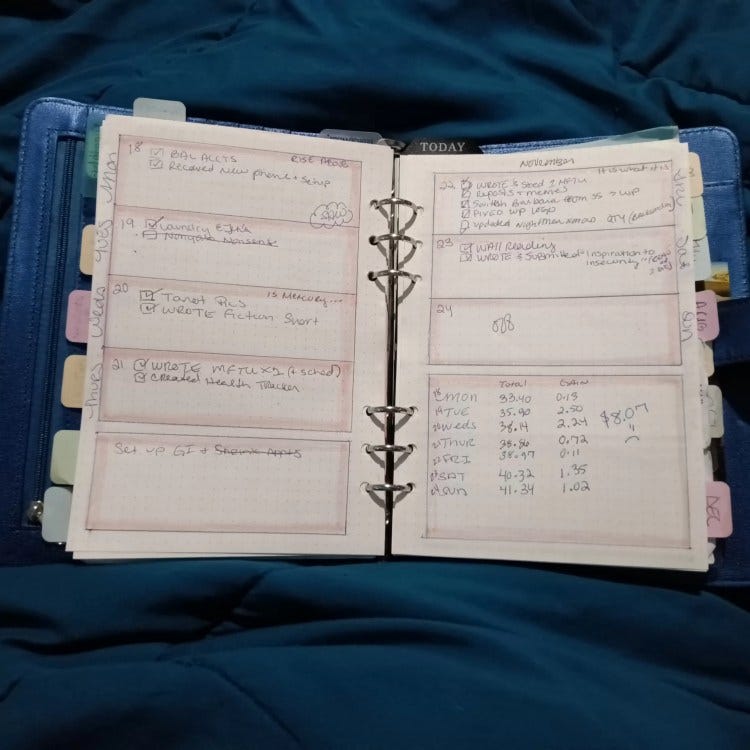 TODAY
18
Mon
☑ BAL ACCTS
RISE
☑ Received New phone + setup
19
Tues
☑ Laundry
Nonsense
20
Weds
☑ Tarot Pics
IS MERCURY...
☑ WROTE Fiction Short
21
Thurs
☑ WROTE METU x2 (+ sched)
☑ Created Health Tracker
Set up GI + Shrink Appts
November
It is what it is
22
☑ WROTE & Sched 2 METU
☑ Reposts + memes
☑ Switch Barbara from SS > WP
☑ Fixed WP Logo
Updated
23
☑ WAII Reading
☑ WROTE & Submitted "Inspiration to
insecurity"
24
Sun
off
Total Gain
MON 33.40 0.13
TUE 35.90 2.50
Weds 38.14 2.24
$8.07
THUR 38.86 0.72
FRI 38.97 0.11
SAT 40.32 1.35
SUN 41.34 1.02
DEC